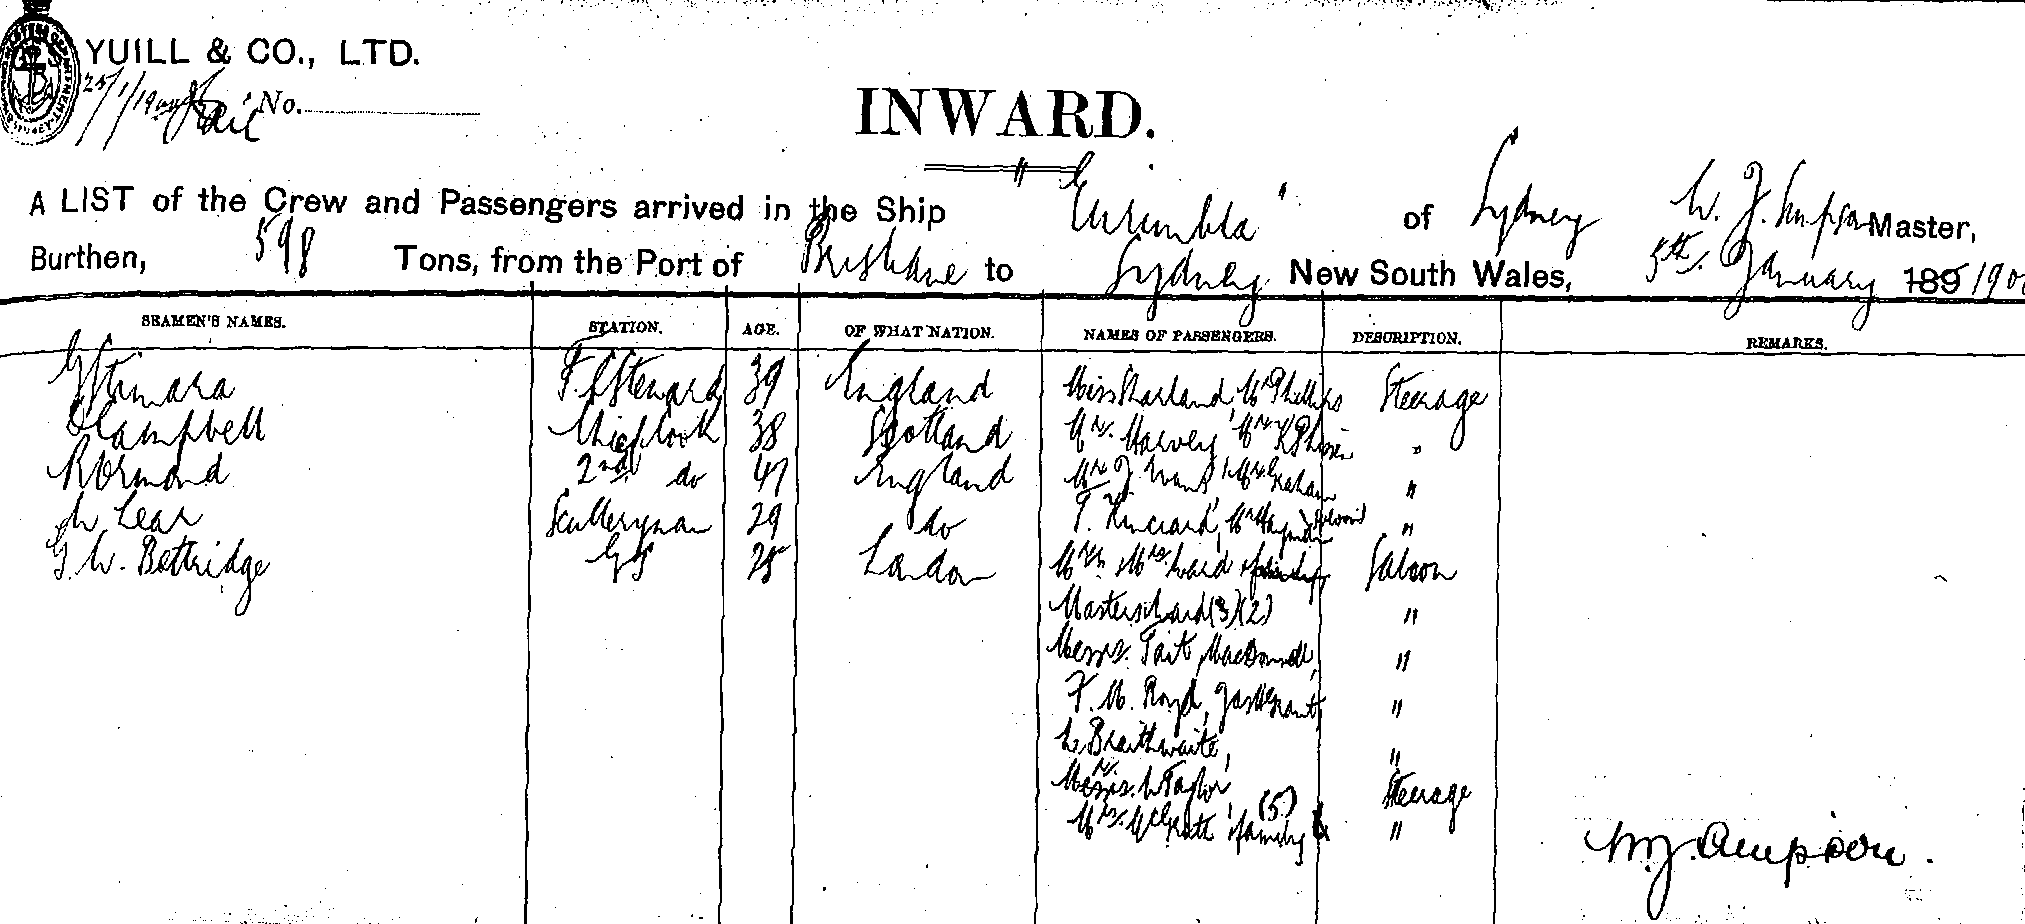 YUILL & CO., LTD.
No.
INWARD.
A LIST of the Crew and Passengers arrived in the Ship "Eurimbla" of Sydney W. J. Simpson Master,
Burthen, 598 Tons, from the Port of Brisbane to Sydney New South Wales, 5th January 189 190
SEAMEN'S NAMES. STATION. AGE. OF WHAT NATION. NAMES OF PASSENGERS. DESCRIPTION. REMARKS.
39 England Miss Sharland, Mr Phillips Steerage
Campbell Chief Cook 38 Scotland Mr. Harvey "
R Ormond 2nd do 47 England "
Lear Sculleryman 29 do "
G. W. Bettridge GS 25 London Ward Saloon
Masters Ward (3) (2) "
Messrs. Tait, MacDonnell, "
F. M. Boyd, "
L. Braithwaite, "
Taylor Steerage
Mrs. McGrath & family (5) "
W J. Simpson.